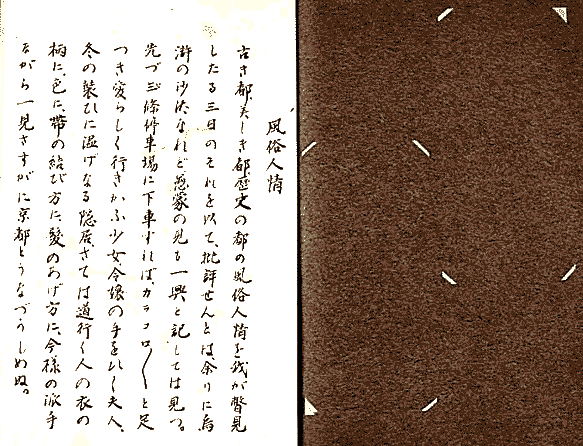 風俗人情
古き都、美しき都、歴史の都の風俗人情を我が瞥見
したる三日のそれを以て、批評せんとは、余りに烏
滸の沙汰なれど、愚蒙の見る一興と記しては見つ。
先づ三條停車場に下車すれば、カラコロ〳〵と足
つき愛らしく行きかふ少女、令嬢の手をひく夫人、
冬の装ひに温げなる隠居さては道行く人の衣の
柄に、色に、帯の結び方に、髪のあげ方に、今様の派手
ながら一見さすがに京都とうなづかしめぬ。